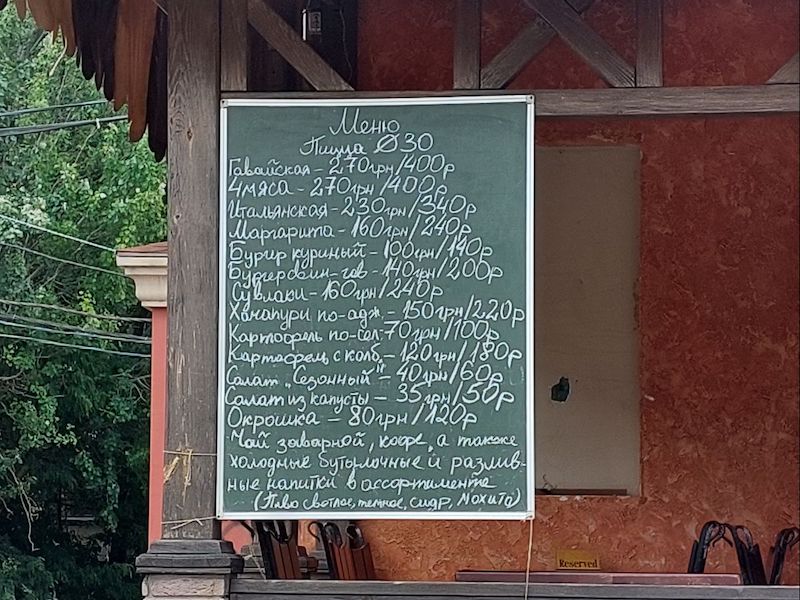 Меню
Пицца Ø30
Гавайская - 270грн/400р
4мяса - 270грн/400р
Итальянская - 230грн/340р
Маргарита - 160грн/240р
Бургер куриный - 100грн/140р
Бургер свин-гов - 140грн/200р
Сувлаки - 160грн/240р
Хачапури по-адж. - 150грн/220р
Картофель по-сел. - 70грн/100р
Картофель с колб. - 120грн/180р
Салат "Сезонный" - 40грн/60р
Салат из капусты - 35грн/50р
Окрошка - 80грн/120р
Чай заварной, кофе, а также
холодные бутылочные и разлив-
ные напитки в ассортименте
(Пиво светлое, темное, сидр, мохито)
Reserved